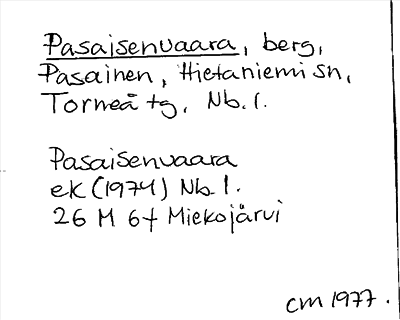 Pasaisenvaara, berg,
Pasainen, Hietaniemi sn,
Torneå tg, Nb. l.
Pasaisenvaara
ek (1974) Nb l.
26 M 6f Miekojärvi
cm 1977.